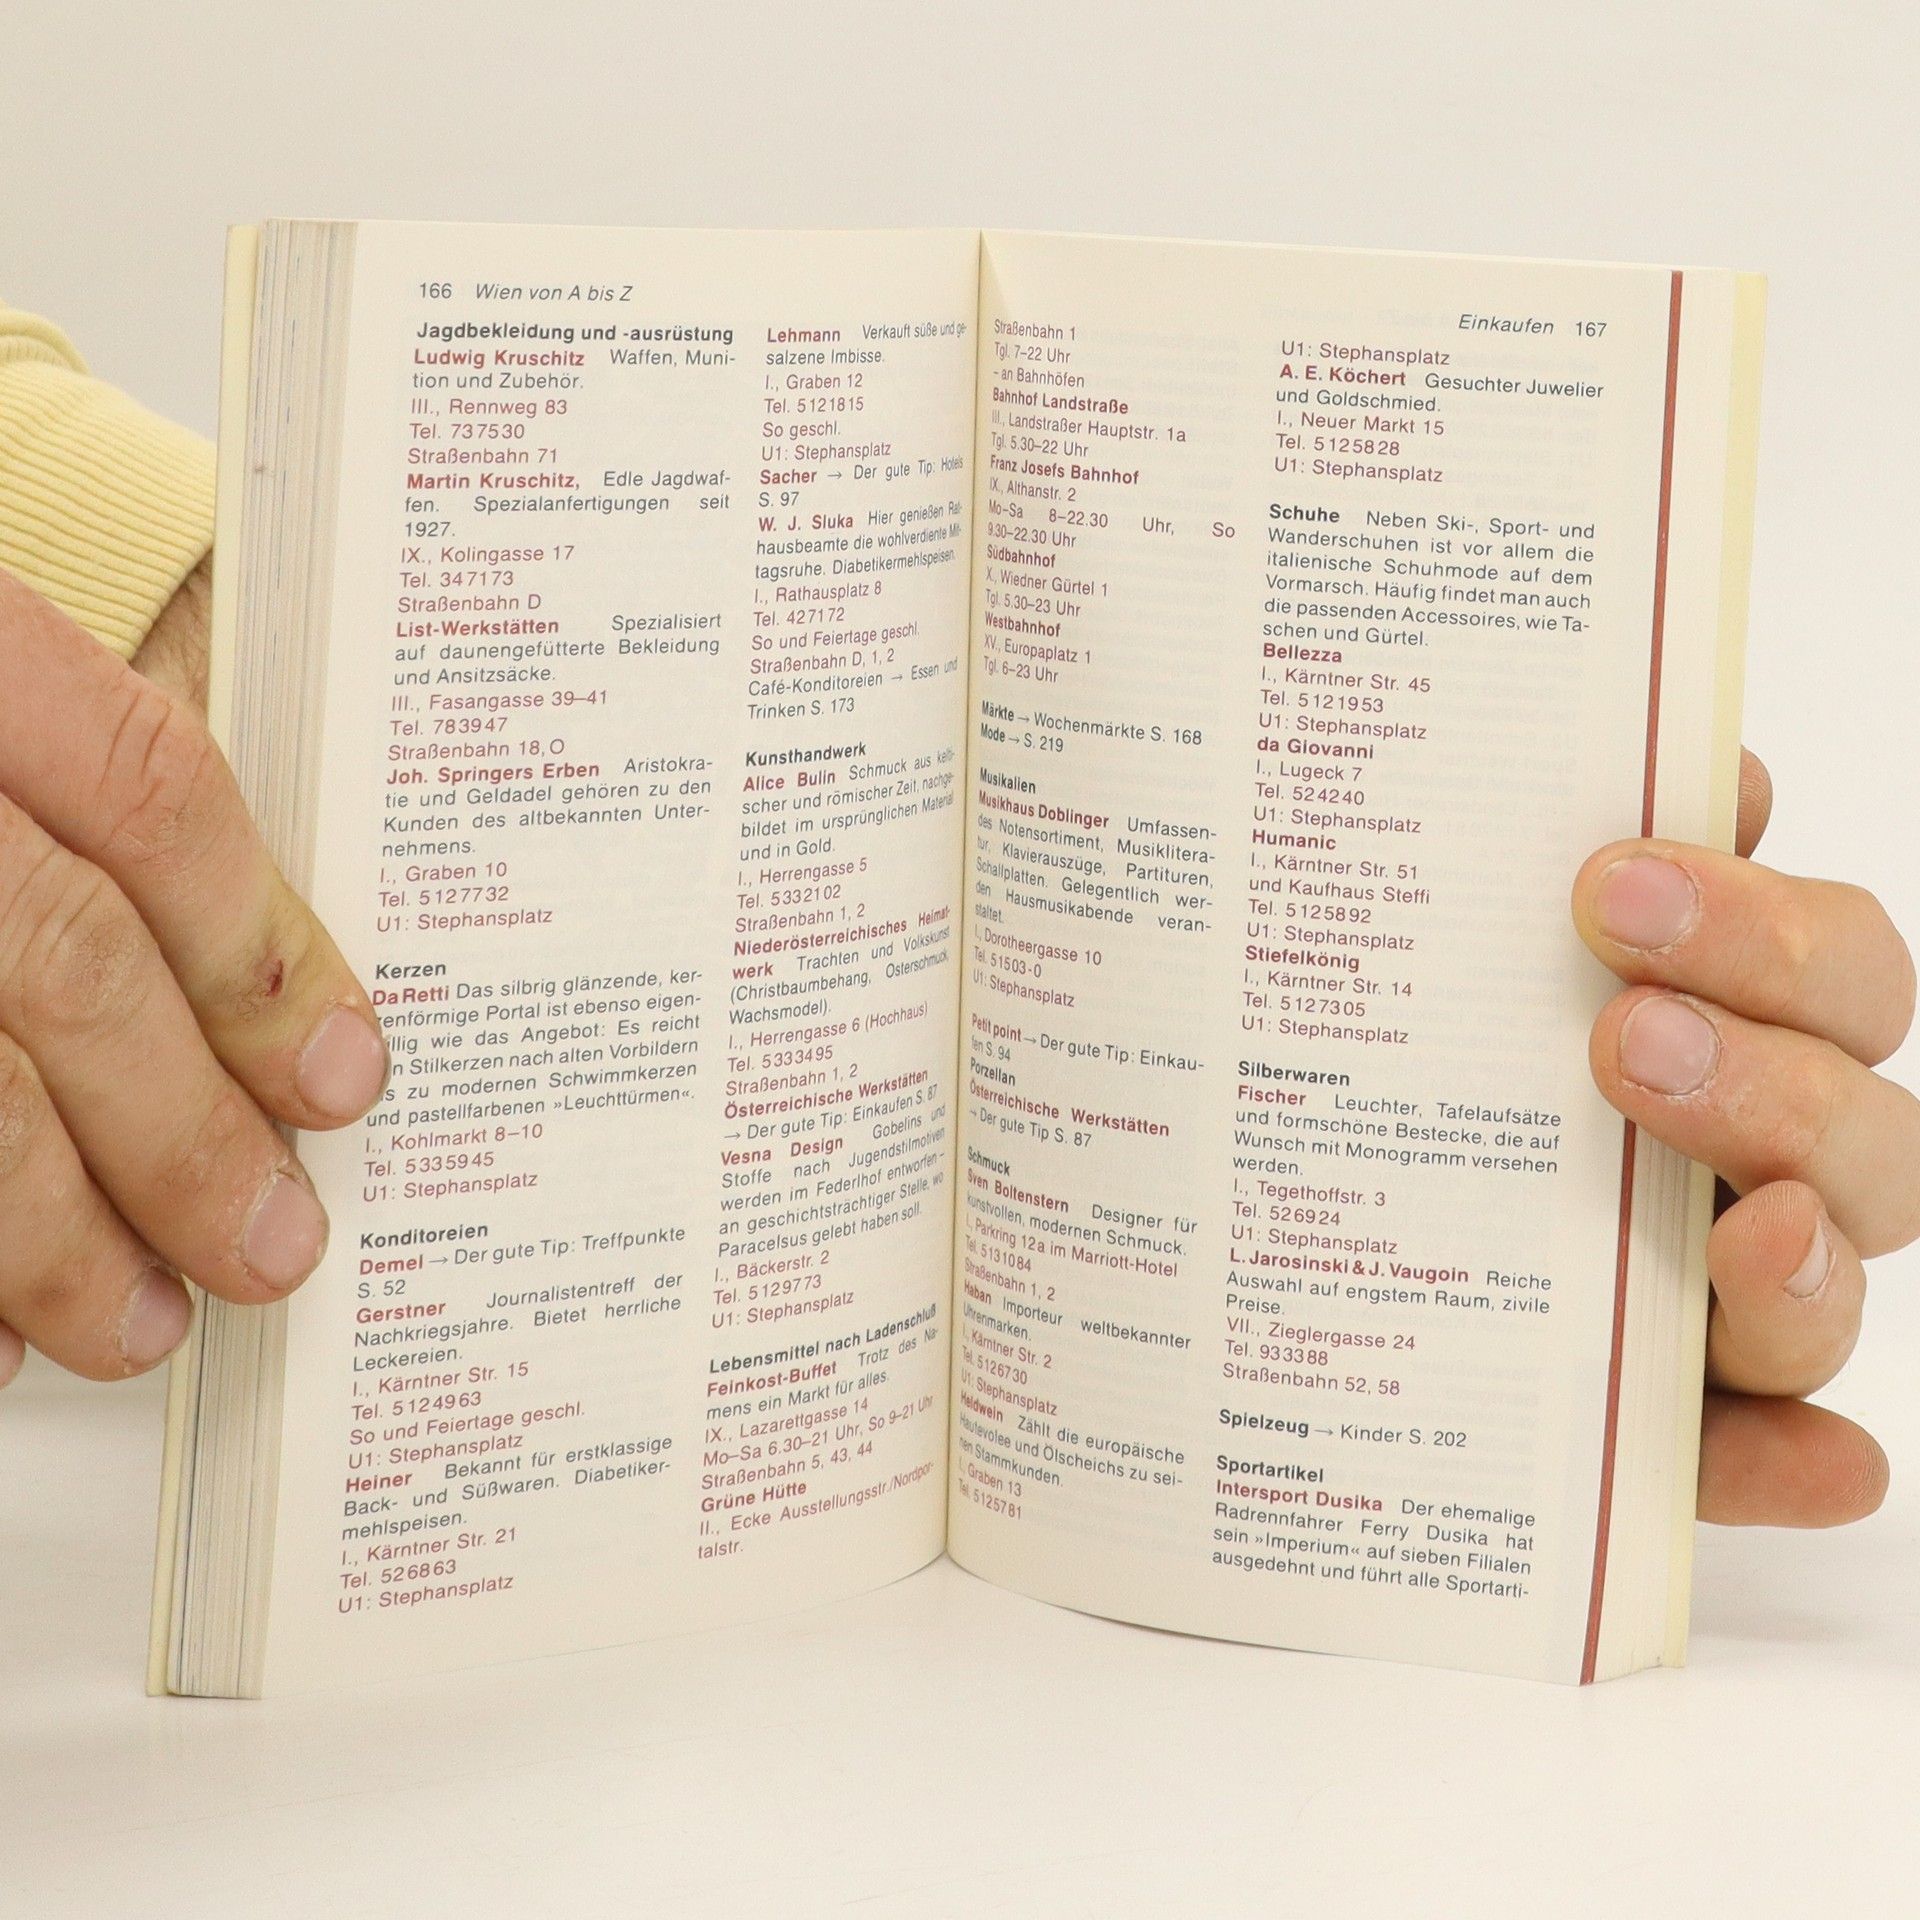 166 Wien von A bis Z
Jagdbekleidung und -ausrüstung
Ludwig Kruschitz Waffen, Muni-
tion und Zubehör.
III., Rennweg 83
Tel. 737530
Straßenbahn 71
Martin Kruschitz, Edle Jagdwaf-
fen. Spezialanfertigungen seit
1927.
IX., Kolingasse 17
Tel. 347173
Straßenbahn D
List-Werkstätten Spezialisiert
auf daunengefütterte Bekleidung
und Ansitzsäcke.
III., Fasangasse 39–41
Tel. 783947
Straßenbahn 18, O
Joh. Springers Erben Aristokra-
tie und Geldadel gehören zu den
Kunden des altbekannten Unter-
nehmens.
I., Graben 10
Tel. 5127732
U1: Stephansplatz
Kerzen
Da Retti Das silbrig glänzende, ker-
zenförmige Portal ist ebenso eigen-
llig wie das Angebot: Es reicht
n Stilkerzen nach alten Vorbildern
s zu modernen Schwimmkerzen
und pastellfarbenen »Leuchttürmen«.
I., Kohlmarkt 8–10
Tel. 5335945
U1: Stephansplatz
Konditoreien
Demel → Der gute Tip: Treffpunkte
S. 52
Gerstner Journalistentreff der
Nachkriegsjahre. Bietet herrliche
Leckereien.
I., Kärntner Str. 15
Tel. 5124963
So und Feiertage geschl.
U1: Stephansplatz
Heiner Bekannt für erstklassige
Back- und Süßwaren. Diabetiker-
mehlspeisen.
I., Kärntner Str. 21
Tel. 526863
U1: Stephansplatz
Lehmann Verkauft süße und ge-
salzene Imbisse.
I., Graben 12
Tel. 5121815
So geschl.
U1: Stephansplatz
Sacher → Der gute Tip: Hotels
S. 97
W. J. Sluka Hier genießen Rat-
hausbeamte die wohlverdiente Mit-
tagsruhe. Diabetikermehlspeisen.
I., Rathausplatz 8
Tel. 427172
So und Feiertage geschl.
Straßenbahn D, 1, 2
Café-Konditoreien → Essen und
Trinken S. 173
Kunsthandwerk
Alice Bulin Schmuck aus kelti-
scher und römischer Zeit, nachge-
bildet im ursprünglichen Material
und in Gold.
I., Herrengasse 5
Tel. 5332102
Straßenbahn 1, 2
Niederösterreichisches Heimat-
werk Trachten und Volkskunst
(Christbaumbehang, Osterschmuck,
Wachsmodel).
I., Herrengasse 6 (Hochhaus)
Tel. 5333495
Straßenbahn 1, 2
Österreichische Werkstätten
→ Der gute Tip: Einkaufen S. 87
Vesna Design Gobelins und
Stoffe nach Jugendstilmotiven
werden im Federlhof entworfen –
an geschichtsträchtiger Stelle, wo
Paracelsus gelebt haben soll.
I., Bäckerstr. 2
Tel. 5129773
U1: Stephansplatz
Lebensmittel nach Ladenschluß
Feinkost-Buffet Trotz des Na-
mens ein Markt für alles.
IX., Lazarettgasse 14
Mo–Sa 6.30–21 Uhr, So 9–21 Uhr
Straßenbahn 5, 43, 44
Grüne Hütte
II., Ecke Ausstellungsstr./Nordpor-
talstr.
Einkaufen 167
Straßenbahn 1
Tgl. 7–22 Uhr
- an Bahnhöfen
Bahnhof Landstraße
III., Landstraßer Hauptstr. 1a
Tgl. 5.30–22 Uhr
Franz Josefs Bahnhof
IX., Althanstr. 2
Mo–Sa 8–22.30 Uhr, So
9.30–22.30 Uhr
Südbahnhof
X., Wiedner Gürtel 1
Tgl. 5.30–23 Uhr
Westbahnhof
XV., Europaplatz 1
Tgl. 6–23 Uhr
Märkte → Wochenmärkte S. 168
Mode → S. 219
Musikalien
Musikhaus Doblinger Umfassen-
des Notensortiment, Musiklitera-
tur. Klavierauszüge, Partituren,
Schallplatten. Gelegentlich wer-
den Hausmusikabende veran-
staltet.
I., Dorotheergasse 10
Tel. 51503-0
U1: Stephansplatz
Petit point → Der gute Tip: Einkau-
fen S. 94
Porzellan
Österreichische Werkstätten
→ Der gute Tip S. 87
Schmuck
Sven Boltenstern Designer für
kunstvollen, modernen Schmuck.
I., Parkring 12a im Marriott-Hotel
Tel. 5131084
Straßenbahn 1, 2
Haban Importeur weltbekannter
Uhrenmarken.
I., Kärntner Str. 2
Tel. 5126730
U1: Stephansplatz
Heldwein Zählt die europäische
Hautevolee und Ölscheichs zu sei-
nen Stammkunden.
I., Graben 13
Tel. 5125781
U1: Stephansplatz
A. E. Köchert Gesuchter Juwelier
und Goldschmied.
I., Neuer Markt 15
Tel. 5125828
U1: Stephansplatz
Schuhe Neben Ski-, Sport- und
Wanderschuhen ist vor allem die
italienische Schuhmode auf dem
Vormarsch. Häufig findet man auch
die passenden Accessoires, wie Ta-
schen und Gürtel.
Bellezza
I., Kärntner Str. 45
Tel. 5121953
U1: Stephansplatz
da Giovanni
I., Lugeck 7
Tel. 524240
U1: Stephansplatz
Humanic
I., Kärntner Str. 51
und Kaufhaus Steffi
Tel. 5125892
U1: Stephansplatz
Stiefelkönig
I., Kärntner Str. 14
Tel. 5127305
U1: Stephansplatz
Silberwaren
Fischer Leuchter, Tafelaufsätze
und formschöne Bestecke, die auf
Wunsch mit Monogramm versehen
werden.
I., Tegethoffstr. 3
Tel. 526924
U1: Stephansplatz
L. Jarosinski & J. Vaugoin Reiche
Auswahl auf engstem Raum, zivile
Preise.
VII., Zieglergasse 24
Tel. 933388
Straßenbahn 52, 58
Spielzeug → Kinder S. 202
Sportartikel
Intersport Dusika Der ehemalige
Radrennfahrer Ferry Dusika hat
sein »Imperium« auf sieben Filialen
ausgedehnt und führt alle Sportarti-